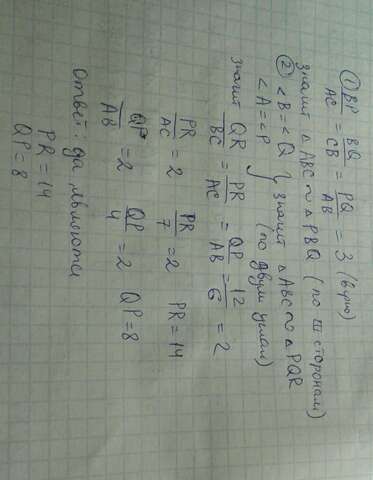 ① BP/AC = BQ/CB = PQ/AB = 3 (верно)
значит △ABC ∾ △PBQ (по III сторонам)
② <B = <Q } значит △ABC ∾ △PQR
<A = <P (по двум углам)
значит QR/BC = PR/AC = QP/AB = 12/6 = 2
PR/AC = 2 PR/7 = 2 PR = 14
QP/AB = 2 QP/4 = 2 QP = 8
Ответ: да, являются
PR = 14
QP = 8